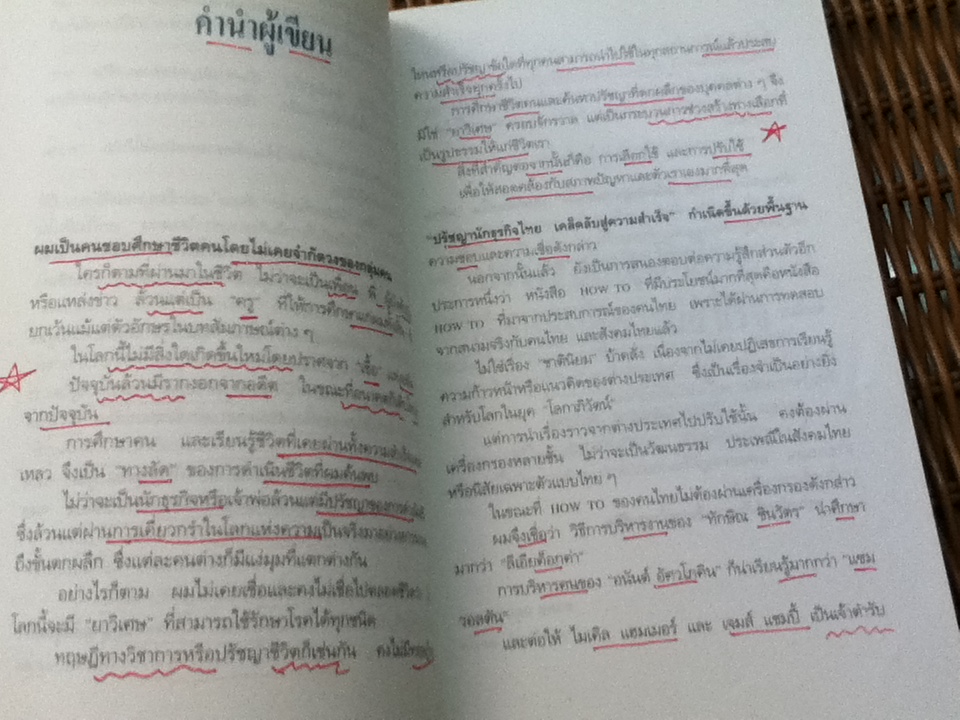 คำนำผู้เขียน
ผมเป็นคนชอบศึกษาชีวิตคนโดยไม่เคยจำกัดวงของกลุ่มคน
ใครก็ตามที่ผ่านมาในชีวิต ไม่ว่าจะเป็นเพื่อน พี่
หรือแหล่งข่าว ล้วนแต่เป็น "ครู" ที่ให้การศึกษา
ยกเว้นแม้แต่ตัวอักษรในบทสัมภาษณ์ต่าง ๆ
ในโลกนี้ไม่มีสิ่งใดเกิดขึ้นใหม่โดยปราศจาก "เชื้อ"
ปัจจุบันล้วนมีรากงอกจากอดีต ในขณะที่อนาคตก็
จากปัจจุบัน
การศึกษาคน และเรียนรู้ชีวิตที่เคยผ่านทั้งความสำเร็จ
เหลว จึงเป็น "ทางลัด" ของการดำเนินชีวิตที่ผมค้นพบ
ไม่ว่าจะเป็นนักธุรกิจหรือเจ้าพ่อล้วนแต่มีปรัชญาของ
ซึ่งล้วนแต่ผ่านการเคี่ยวกรำในโลกแห่งความเป็นจริงมาอย่าง
ถึงขั้นตกผลึก ซึ่งแต่ละคนต่างก็มีแง่มุมที่แตกต่างกัน
อย่างไรก็ตาม ผมไม่เคยเชื่อและคงไม่เชื่อไปตลอดชีวิตว่า
โลกนี้จะมี "ยาวิเศษ" ที่สามารถใช้รักษาโรคได้ทุกชนิด
ทฤษฎีทางวิชาการหรือปรัชญาชีวิตก็เช่นกัน คงไม่มี
ไหนหรือปรัชญาข้อใดที่ทุกคนสามารถนำไปใช้ในทุกสถานการณ์แล้วประสบ
ความสำเร็จทุกครั้งไป
การศึกษาชีวิตคนและค้นหาปรัชญาที่ตกผลึกของบุคคลต่าง ๆ จึง
มิใช่ "ยาวิเศษ" ครอบจักรวาล แต่เป็นกระบวนการช่วงสร้างทางเลือกที่
เป็นรูปธรรมให้แก่ชีวิตเรา
สิ่งที่สำคัญต่อจากนั้นก็คือ การเลือกใช้ และการปรับใช้
เพื่อให้สอดคล้องกับสภาพปัญหาและตัวเราเองมากที่สุด
"ปรัชญานักธุรกิจไทย เคล็ดลับสู่ความสำเร็จ" กำเนิดขึ้นด้วยพื้นฐาน
ความชอบและความเชื่อดังกล่าว
นอกจากนั้นแล้ว ยังเป็นการสนองตอบต่อความรู้สึกส่วนตัวอีก
ประการหนึ่งว่า หนังสือ HOW TO ที่มีประโยชน์มากที่สุดคือหนังสือ
HOW TO ที่มาจากประสบการณ์ของคนไทย เพราะได้ผ่านการทดสอบ
จากสนามจริงกับคนไทย และสังคมไทยแล้ว
ไม่ใช่เรื่อง "ชาตินิยม" บ้าคลั่ง เนื่องจากไม่เคยปฏิเสธการเรียนรู้
ความก้าวหน้าหรือแนวคิดของต่างประเทศ ซึ่งเป็นเรื่องจำเป็นอย่างยิ่ง
สำหรับโลกในยุค "โลกาภิวัตน์"
แต่การนำเรื่องราวจากต่างประเทศไปปรับใช้นั้น คงต้องผ่าน
เครื่องกรองหลายชั้น ไม่ว่าจะเป็นวัฒนธรรม ประเพณีในสังคมไทย
หรือนิสัยเฉพาะตัวแบบไทย ๆ
ในขณะที่ HOW TO ของคนไทยไม่ต้องผ่านเครื่องกรองดังกล่าว
ผมจึงเชื่อว่า วิธีการบริหารงานของ "ทักษิณ ชินวัตร" น่าศึกษา
มากกว่า "ลีเอียค็อกค่า"
การบริหารคนของ "อนันต์ อัศวโภคิน" ก็น่าเรียนรู้มากกว่า "แซม
วอลตัน"
และต่อให้ ไมเคิล แฮมเมอร์ และ เจมส์ แชมปี้ เป็นเจ้าตำรับ